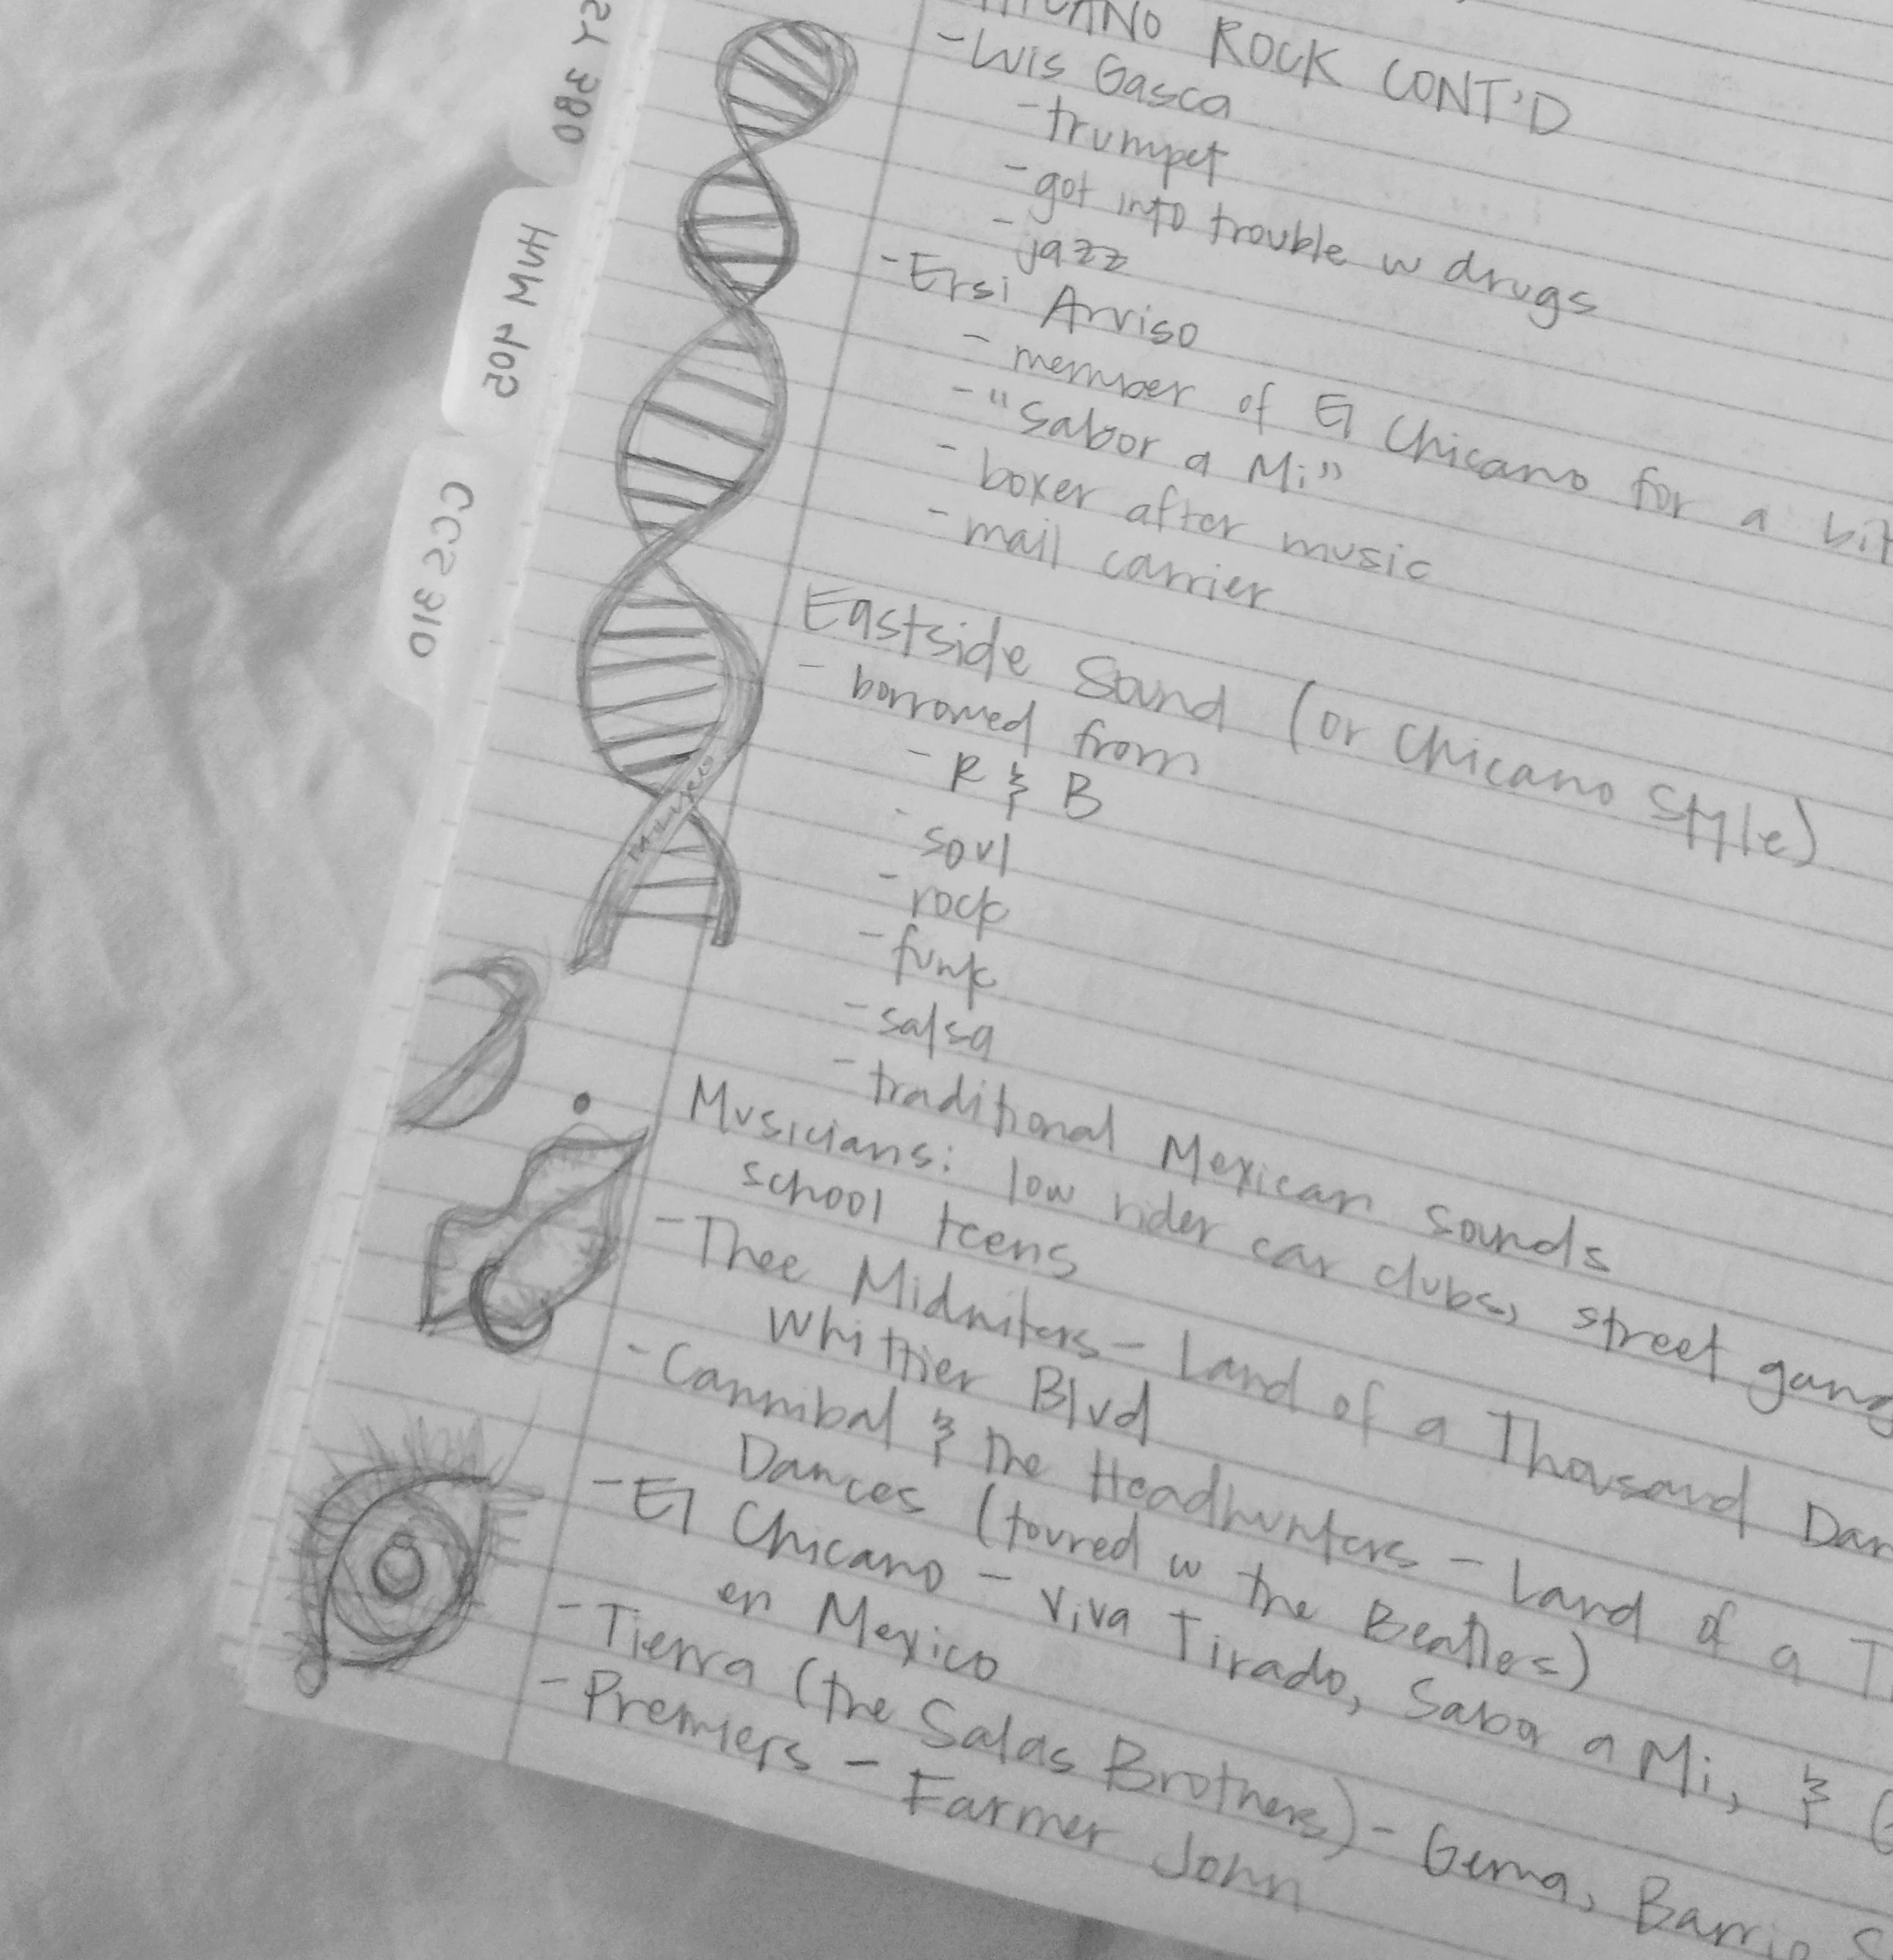 SY 380
HUM 405
CCS 310
CHICANO ROCK CONT'D
- Luis Gasca
- trumpet
- got into trouble w drugs
- jazz
- Ersi Arviso
- member of El Chicano for a bit
- "Sabor a Mi"
- boxer after music
- mail carrier
Eastside Sound (or Chicano Style)
- borrowed from
- R & B
- soul
- rock
- funk
- salsa
- traditional Mexican sounds
Musicians: low rider car clubs, street gang
school teens
- Thee Midniters - Land of a Thousand Dan
Whittier Blvd
- Cannibal & the Headhunters - Land of a T
Dances (toured w the Beatles)
- El Chicano - Viva Tirado, Sabor a Mi, &
en Mexico
- Tierra (the Salas Brothers) - Gema, Barrio S
- Premiers - Farmer John